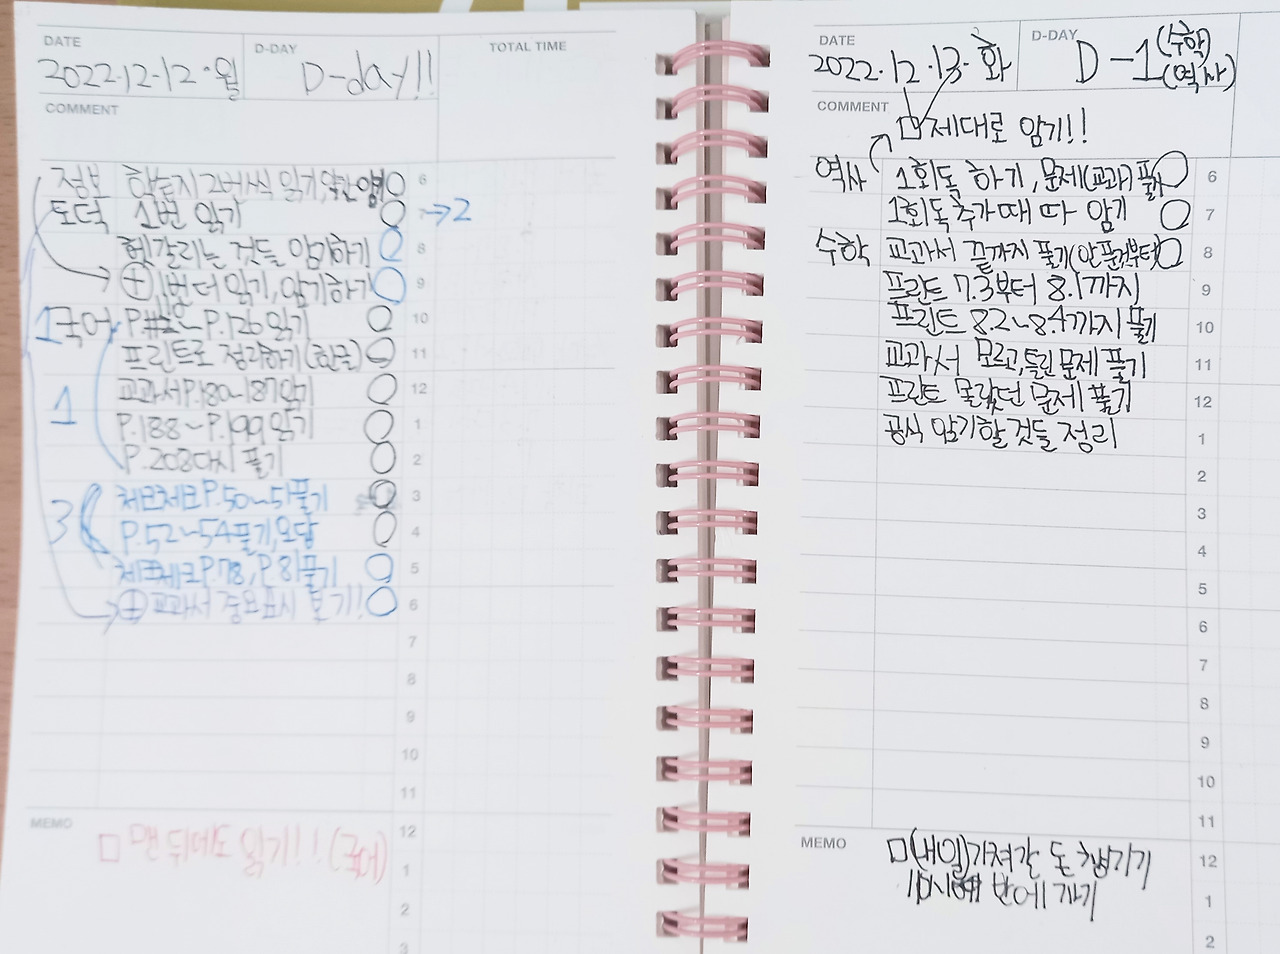 DATE
D-DAY
TOTAL TIME
2022.12.12.월
D-day!!
COMMENT
정보 학습지 2번씩 읽기, 약간 암기 6
도덕 1번 읽기 7 →2
헷갈리는 것들 암기하기! 8
⊕ 1번 더 읽기, 암기하기 9
1 국어 ~P.126 읽기 10
프린트로 정리하기(한글) 11
교과서P.180~187읽기 12
1 P.188~P.199 읽기 1
P.208다시 풀기 2
체크체크P.50~51풀기 3
3 P.52~54풀기,오답 4
체크체크P.78, P.81풀기 5
⊕교과서 중요표시 보기!! 6
7
8
9
10
11
MEMO
12
□ 맨 뒤에도 읽기!! (국어)
1
2
3
DATE
D-DAY
2022.12.13.화
D-1 (수학)
(역사)
COMMENT
□ 제대로 암기!!
역사 1회독 하기, 문제(교과) 풀기 6
1회독 추가 때 다 암기 7
수학 교과서 끝까지 풀기(안 푼것부터) 8
프린트 7.3부터 8.1까지 9
프린트 8.2~8.4까지 풀기 10
교과서 모르고,틀린 문제 풀기 11
프린트 몰랐던 문제 풀기 12
공식 암기할것들 정리 1
2
3
4
5
6
7
8
9
10
11
MEMO
□(내일)가져갈 돈 챙기기 12
반에 가기 1
2